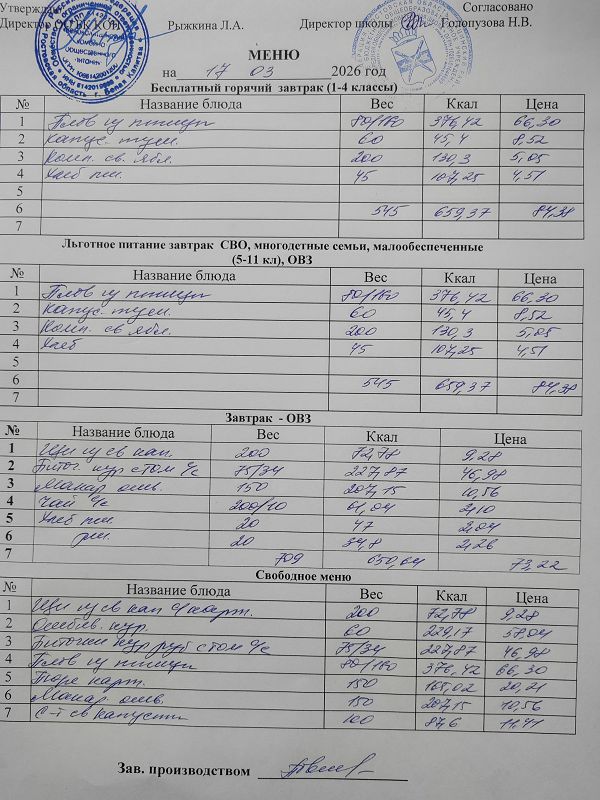 Утверждаю Согласовано
Директор Рыжкина Л.А. Директор школы Голопузова Н.В.
МЕНЮ
на 17 03 2026 год
Бесплатный горячий завтрак (1-4 классы)
№ Название блюда Вес Ккал Цена
1 Плов из птицы 80/160 376,42 66,30
2 Капус. туш. 60 45,4 8,52
3 Комп. св. ябл. 200 130,3 5,05
4 Хлеб пш. 45 107,25 4,51
5
6 545 659,37 84,38
7
Льготное питание завтрак СВО, многодетные семьи, малообеспеченные
(5-11 кл), ОВЗ
№ Название блюда Вес Ккал Цена
1 Плов из птицы 80/160 376,42 66,30
2 Капус. туш. 60 45,4 8,52
3 Комп. св ябл. 200 130,3 5,05
4 Хлеб 45 107,25 4,51
5
6 545 659,37 84,38
7
Завтрак - ОВЗ
№ Название блюда Вес Ккал Цена
1 Щи из св кап. 200 72,78 9,28
2 Биточ. кур с том с/с 75/34 227,87 46,98
3 Макар. отв. 150 207,15 10,56
4 Чай с/с 200/10 61,04 2,10
5 Хлеб пш. 20 47 2,04
6 рж. 20 34,8 2,26
7 709 650,64 73,22
Свободное меню
№ Название блюда Вес Ккал Цена
1 Щи из св кап с/карт. 200 72,78 9,28
2 кур. 60 229,17 58,04
3 Биточки кур руб с том с/с 75/34 227,87 46,98
4 Плов из птицы 80/160 376,42 66,30
5 Пюре карт. 150 165,02 20,21
6 Макар. отв. 150 207,15 10,56
7 С-т св капусты 100 87,6 11,41
Зав. производством